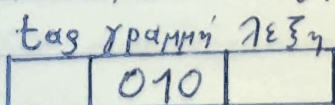 tag γραμμή λέξη
010